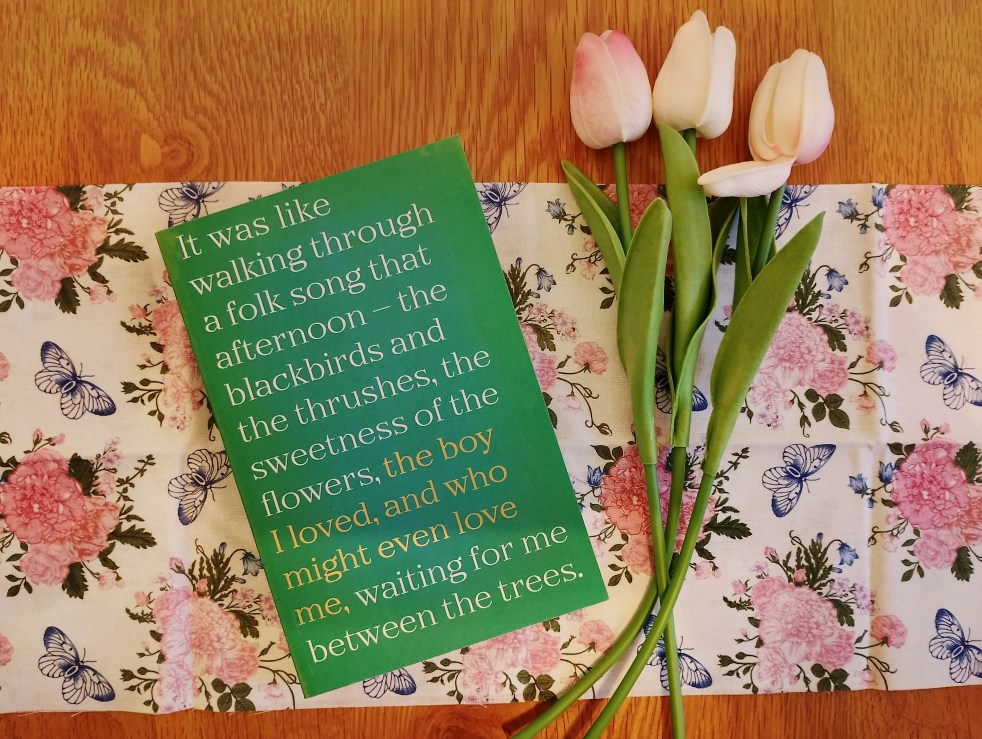 It was like
walking through
a folk song that
afternoon – the
blackbirds and
the thrushes, the
sweetness of the
flowers, the boy
I loved, and who
might even love
me, waiting for me
between the trees.